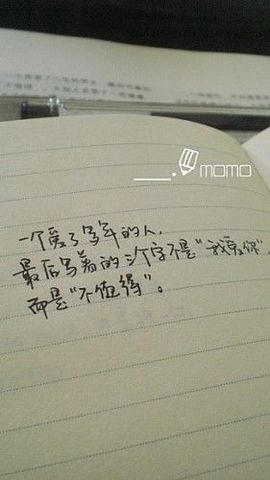 momo
一个爱了多年的人,
最后写着的三个字不是“我爱你”,
而是“不值得”。